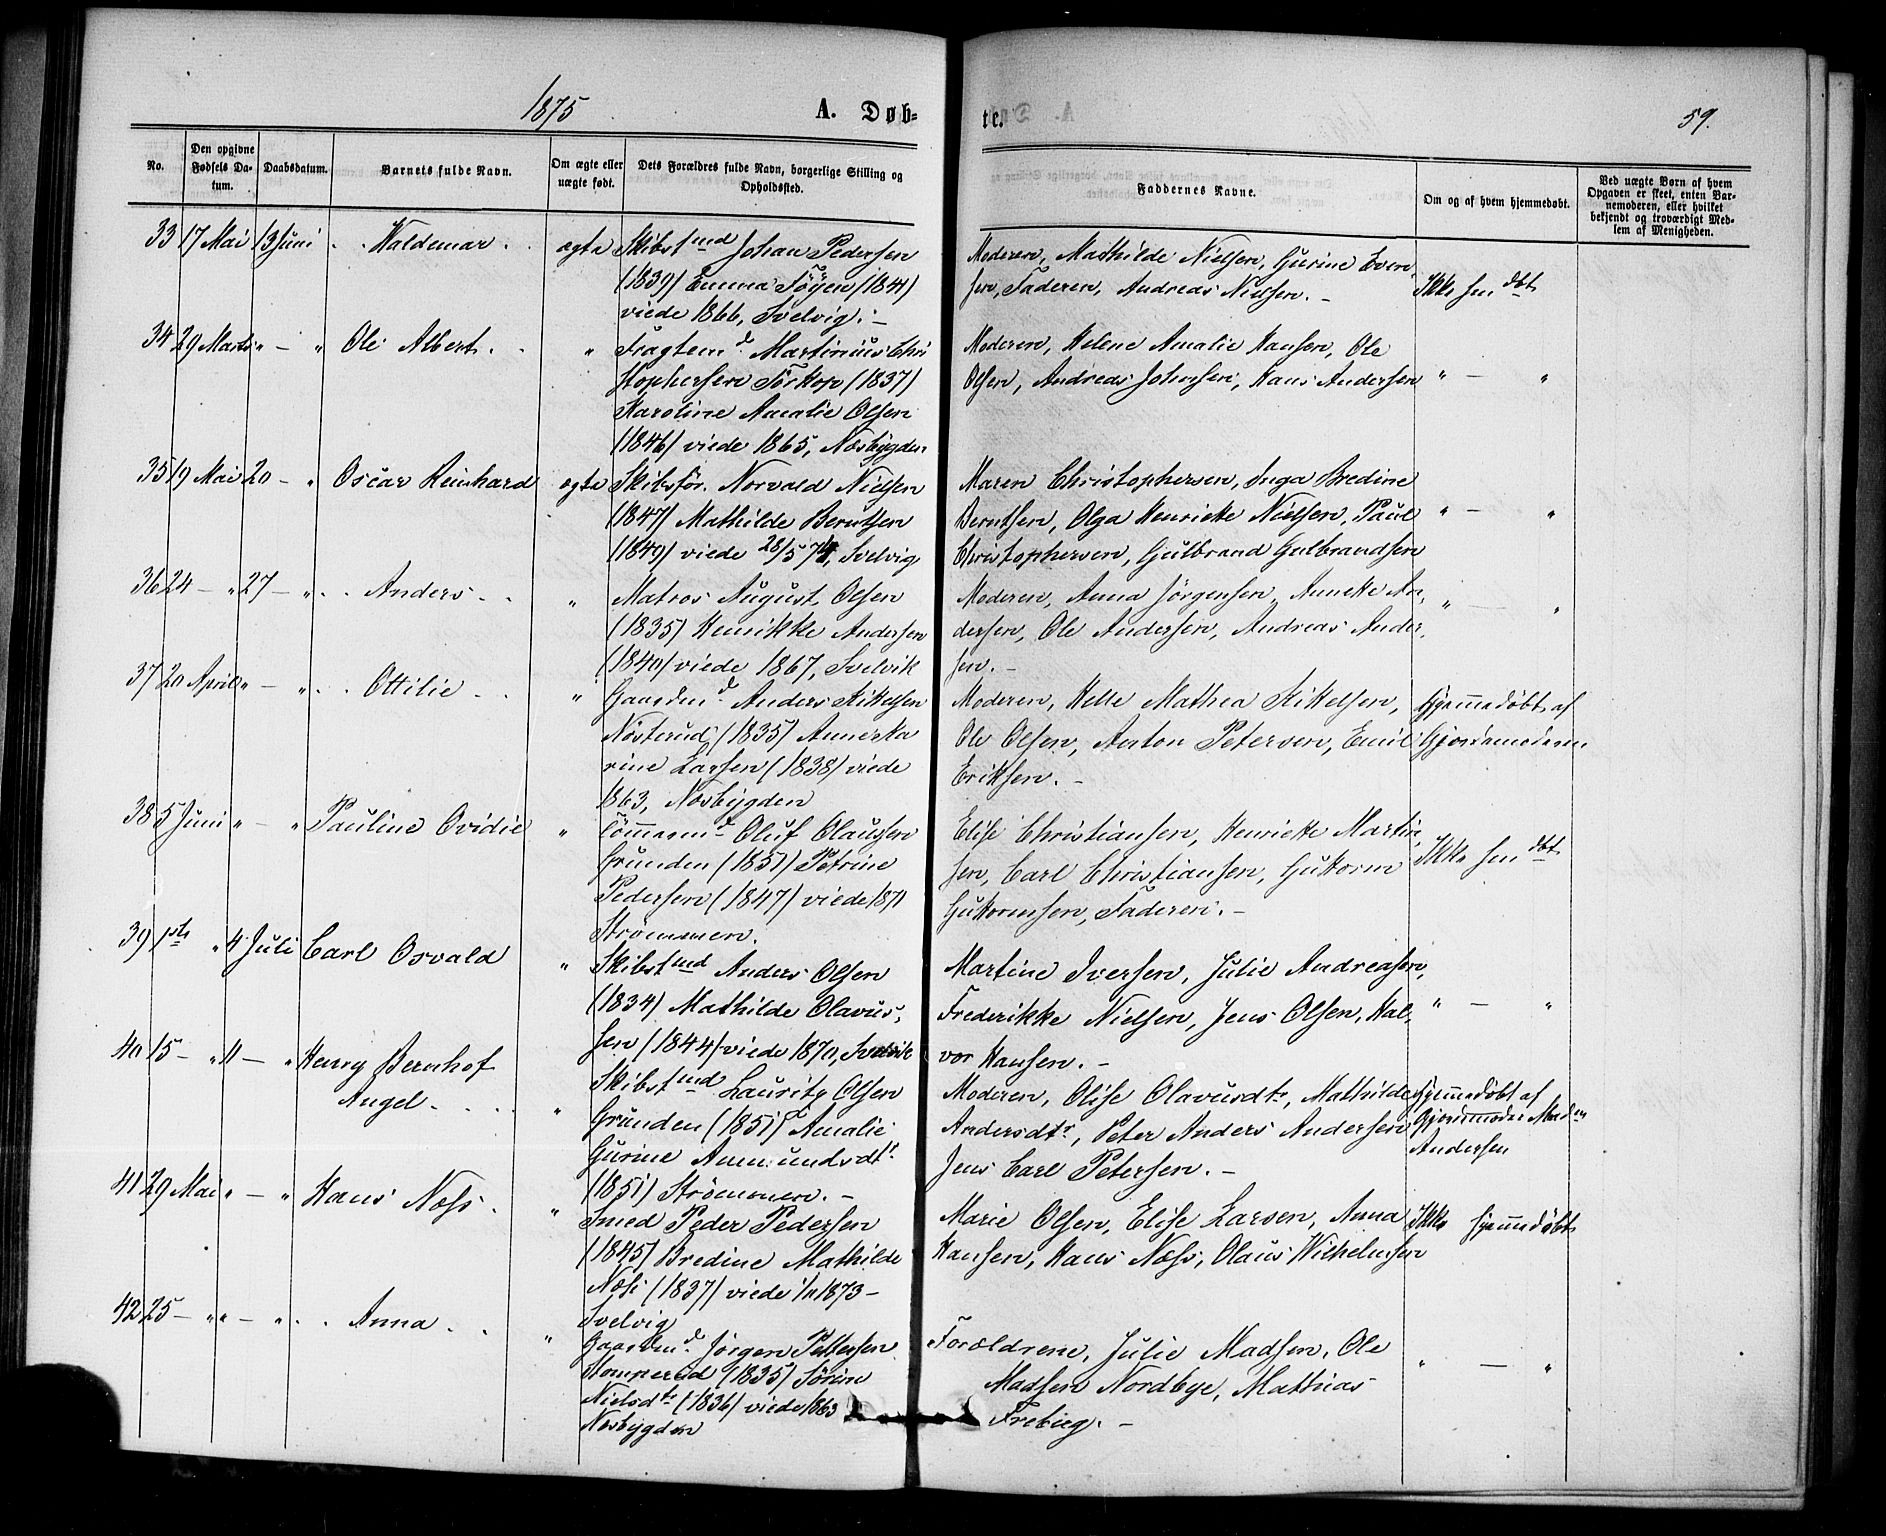 1875 A. Døb-
te. 59.
No. Den opgivne Fødsels Datum. Daabsdatum. Barnets fulde Navn. Om ægte eller uægte født. Dets Forældres fulde Navn, borgerlige Stilling og Opholdssted.
Faddernes Navne. Om og af hvem hjemmedøbt. Ved uægte Børn af hvem Opgaven er skeet, enten Barnemoderen, eller hvilket bekjendt og troværdigt Medlem af Menigheden.
33 17 Mai 13 Juni Waldemar ægte Skibstmd Johan Pedersen
(1839) Emma Jörgen (1841)
viede 1866, Svelvig. -
Moderen, Mathilde Nielsen, Gurine Even-
sen, Faderen, Andreas Nielsen. - Ikke hjemdbt
34 29 Marts " — " Ole Albert. " Fragtemd. Martinius Chri
stophersen Torkop (1837)
Karoline Amalie Olsen
(1846) viede 1865, Nesbygden
Moderen, Helene Amalie Hansen, Ole
Olsen, Andreas Johnsen, Hans Andersen " — "
35 19 Mai 20 — " Oscar Reinhard ægte Skibsför. Norvald Nielsen
(1847) Mathilde Berntsen
(1849) viede 28/5 74, Svelvig
Maren Christophersen, Inga Bredine
Berntsen, Olga Henrikke Nielsen, Paul " — "
Christophersen, Gulbrand Gulbrandsen
36 24 — " 27 — " Anders " Matros August Olsen
(1835) Henrikke Andersen
(1840) viede 1867, Svelvik
Moderen, Anna Jörgensen, Anneke An-
dersen, Ole Andersen, Andreas Ander-
sen. - " — "
37 20 April " — " Ottilie " Gaardmd. Anders Kikelsen
Nösterud (1835) Anneka
rine Larsen (1838) viede
1863, Nesbygden
Moderen, Helle Mathea Kikelsen,
Ole Olsen, Anton Petersen, Emil
Eriksen. -
Hjemmedöbt af
Gjordemoderen
38 5 Juni " — " Pauline Ovidie " Tömmermd Oluf Clausen
Grunden (1851) Petrine
Pedersen (1847) viede 1871
Strömmen.
Elise Christiansen, Henrikke Martin-
sen, Carl Christiansen, Gutorm
Gutormsen, Faderen. - Ikke hjemdbt
39 1ste " 4 Juli Carl Osvald " Skibstmd Anders Olsen
(1834) Mathilde Olavus-
sen (1844) viede 1870, Svelvik
Martine Iversen, Julie Andreasen,
Frederikke Nielsen, Jens Olsen, Hal-
vor Hansen. - " — "
40 15 — " 11 — " Henry Bernhof
Angel " Skibstmd Lauritz Olsen
Grunden (1851) Amalie
Gurine Ammundsdtr.
(1851) Strömmen. -
Moderen, Olise Olavusdtr, Mathilde
Andersdtr, Peter Anders Andersen
Jens Carl Petersen. -
Hjemmedöbt af
Gjordemoder Madm
Andersen
41 29 Mai " — " Hans Næss. " Smed Peder Pedersen
(1845) Bredine Mathilde
Næss (1837) viede 1873 —
Svelvig
Marie Olsen, Elise Larsen, Anna
Hansen, Hans Næss, Olaus Wilhelmsen
Ikke hjemmedöbt
42 25 — " " — " Anna " Gaardmd. Jörgen Pettersen
Stomperud (1835) Sörine
Nielsdtr (1836) viede 1863
Nesbygden
Forældrene, Julie Madsen, Ole
Madsen Nordbye, Mathias
Frebieg. - " — "